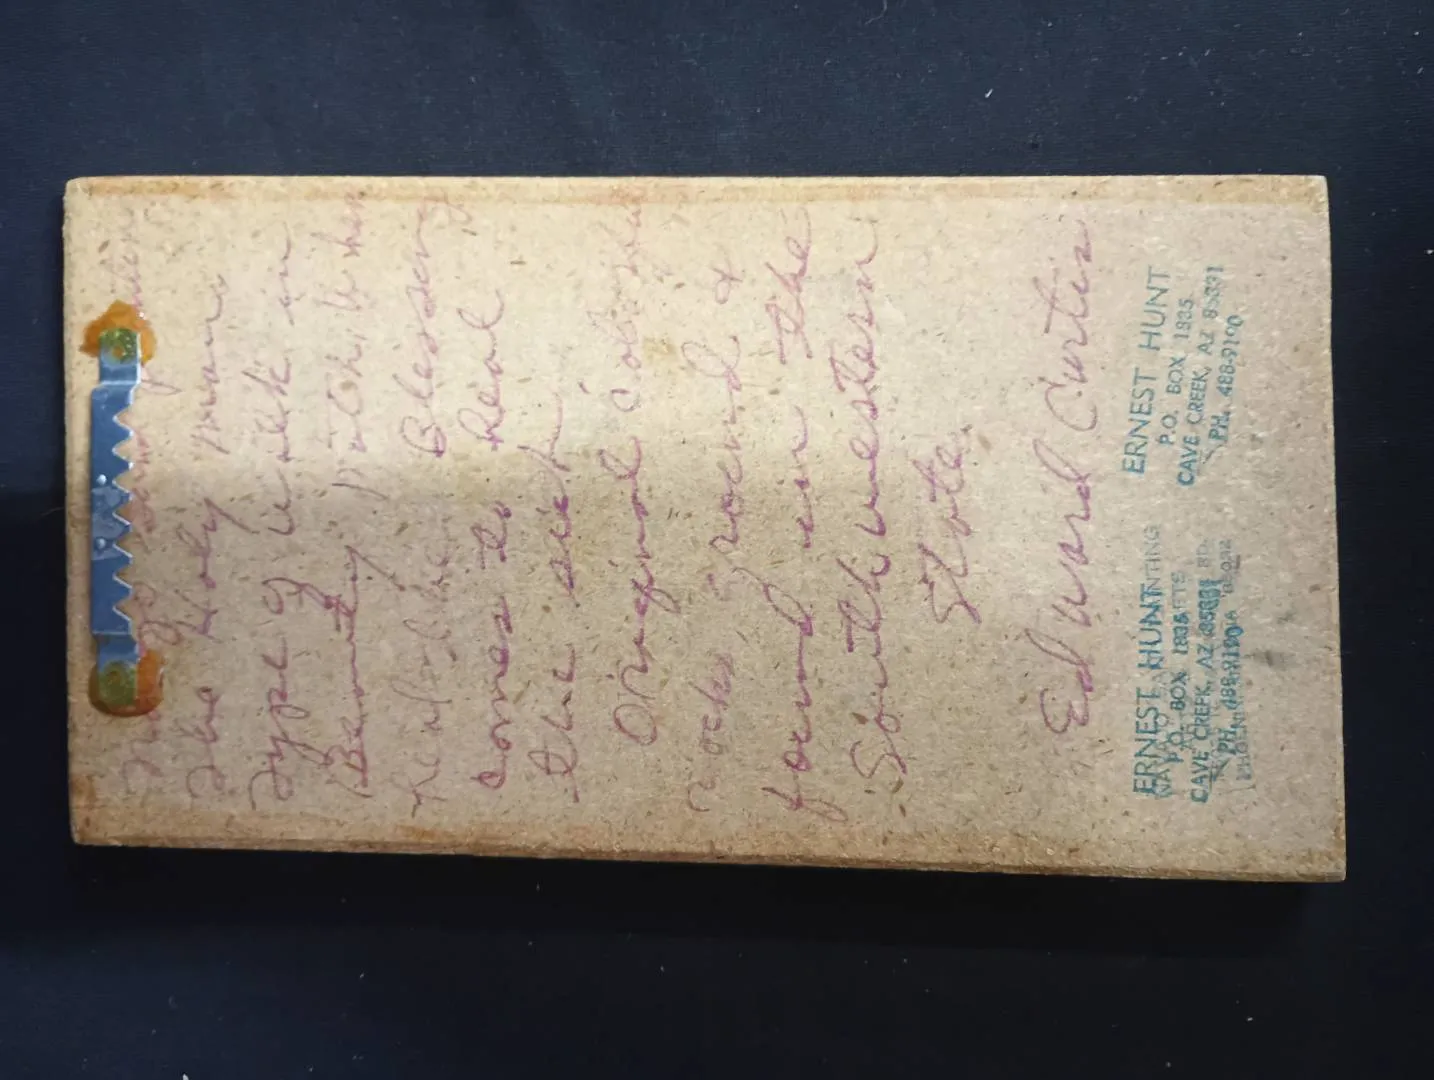 Navajo sand painting
The Holy man
Type of walk in
Beauty
Blessing
comes to heal
the sick
Original colored
rocks ground &
found in the
Southwestern
State.
Edward Curtis
ERNEST HUNT
P.O. BOX 1835
CAVE CREEK, AZ 85331
PH. 488-9100
ERNEST HUNT
P.O. BOX 1835
CAVE CREEK, AZ 85331
PH. 488-9100